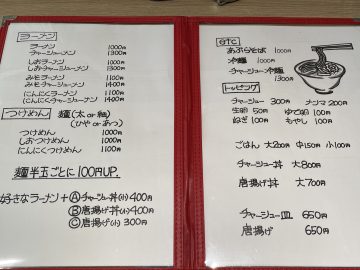 ラーメン
ラーメン 1000円
チャーシューメン 1300円
しおラーメン 1000円
しおチャーシューメン 1300円
みそラーメン 1100円
みそチャーシューメン 1400円
にんにくラーメン 1100円
にんにくチャーシューメン 1400円
つけめん 麺(太or細)
(ひやorあつ)
つけめん 1000円
しおつけめん 1000円
にんにくつけめん 1100円
麺半玉ごとに100円UP.
好きなラーメン+
Ⓐチャーシュー丼(小)400円
Ⓑ唐揚げ丼(小)400円
Ⓒ唐揚げ(小)300円
etc
あぶらそば 1000円
冷麺 1000円
チャーシュー冷麺 1300円
トッピング
チャーシュー 300円 メンマ 200円
生卵 50円 ゆで卵 100円
ねぎ 100円 もやし 100円
ごはん 大200円 中150円 小100円
チャーシュー丼 大800円
唐揚げ丼 大700円
チャーシュー皿 650円
唐揚げ 650円